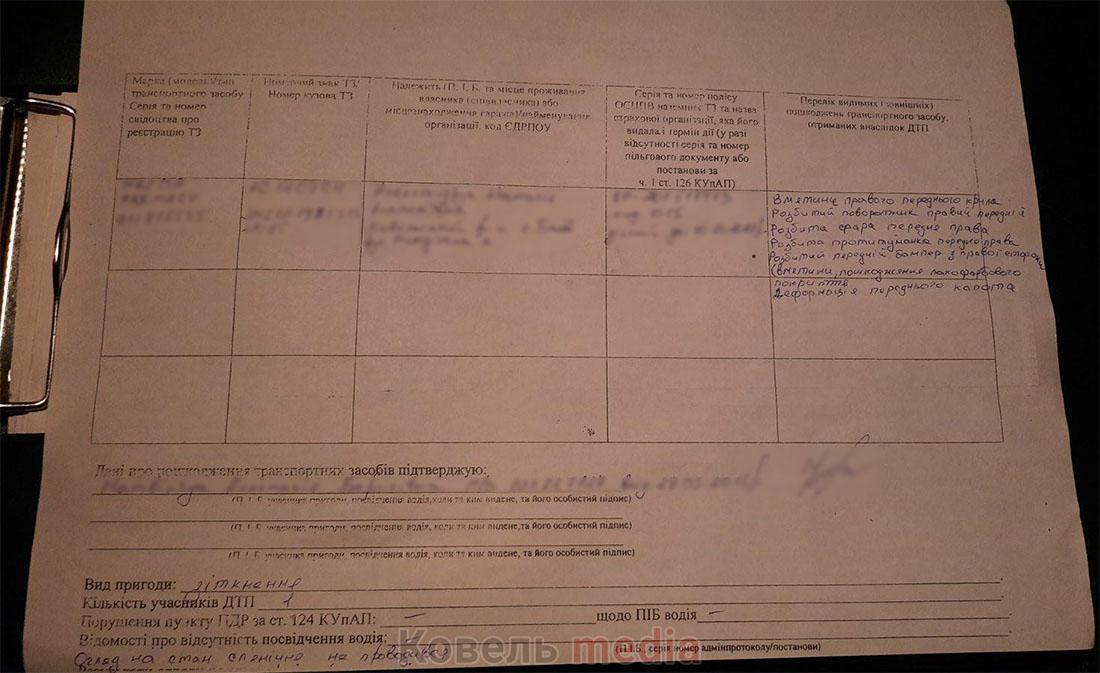 Марка (модель)/тип
транспортного засобу
Серія та номер
свідоцтва про
реєстрацію ТЗ
Номерний знак ТЗ/
Номер кузова ТЗ
Належить (П. І. Б. та місце проживання
власника (співвласника) або
місцезнаходження гаража)/найменування
організації, код ЄДРПОУ
Серія та номер полісу
ОСЦПВ наземних ТЗ та назва
страхової організації, яка його
видала і термін дії (у разі
відсутності серія та номер
пільгового документу або
постанови за
ч. 1 ст. 126 КУпАП)
Перелік видимих (зовнішніх)
пошкоджень транспортного засобу,
отриманих внаслідок ДТП
Вметини правого переднього крила
Розбитий поворотник правий передній
Розбита фара передня права
Розбита протитуманка передня права
Розбитий передній бампер з правої сторони
(вметини, пошкодження лакофарбового
покриття
Деформація переднього капота
Дані про пошкодження транспортних засобів підтверджую:
(П. І. Б. учасника пригоди, посвідчення водія, коли та ким видене, та його особистий підпис)
(П. І. Б. учасника пригоди, посвідчення водія, коли та ким видене, та його особистий підпис)
(П. І. Б. учасника пригоди, посвідчення водія, коли та ким видене, та його особистий підпис)
Вид пригоди: зіткнення
Кількість учасників ДТП 1
Порушення пункту ПДР за ст. 124 КУпАП: — щодо ПІБ водія —
Відомості про відсутність посвідчення водія:
(П.І.Б., серія номер адмінпротоколу/постанови)
Огляд на стан сп'яніння не проводився
Ковель media